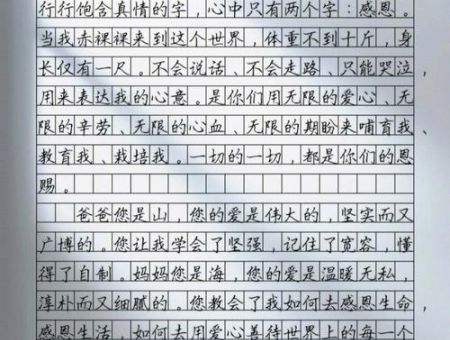 行行饱含真情的字，心中只有两个字：感恩。
当我赤裸裸来到这个世界，体重不到十斤，身
长仅有一尺。不会说话、不会走路、只能哭泣，
用来表达我的心意。是你们用无限的爱心、无
限的辛劳、无限的心血、无限的期盼来哺育我、
教育我、栽培我。一切的一切，都是你们的恩
赐。
爸爸您是山，您的爱是伟大的，坚实而又
广博的。您让我学会了坚强，记住了宽容，懂
得了自制。妈妈您是海，您的爱是温暖无私，
淳朴而又细腻的。您教会了我如何去感恩生命，
感恩生活，如何去用爱心善待世界上的每一个